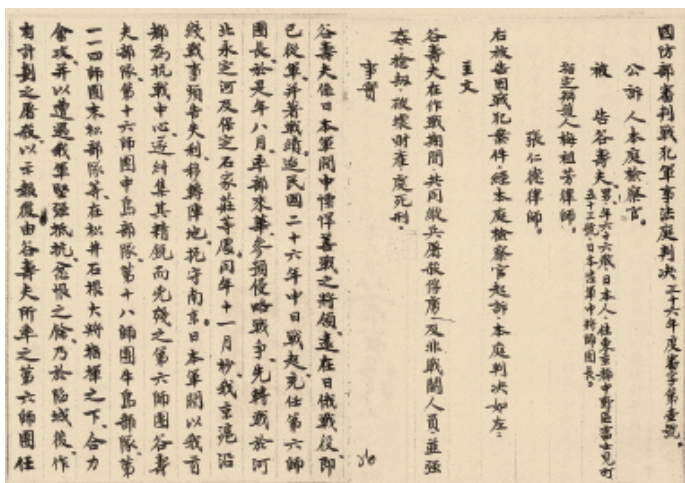 國防部審判戰犯軍事法庭判決 三十六年度審字第壹號
公訴人本庭檢察官。
被 告谷壽夫。男，年六十六歲，日本人，住東京都中野區富士見町
五十三號，日本陸軍中將師團長。
指定辯護人梅祖芳律師。
張仁德律師。
右被告因戰犯案件，經本庭檢察官起訴，本庭判決如左：
主文
谷壽夫在作戰期間，共同縱兵屠殺俘虜及非戰鬪人員，並強
姦、搶刧、破壞財產，處死刑。
事實
谷壽夫係日本軍閥中慓悍善戰之將領，遠在日俄戰役，即
已從軍，并著戰績。迨民國二十六年，中日戰起，充任第六師
團長，於是年八月，率部來華，參預侵略戰爭，先轉戰於河
北永定河及保定石家莊等處。同年十一月杪，我京滬沿
綫戰事頻告失利，移轉陣地，扼守南京。日本軍閥以我首
都為抗戰中心，遂糾集其精銳而兇殘之第六師團谷壽
夫部隊、第十六師團中島部隊、第十八師團牛島部隊、第
一一四師團末松部隊等，在松井石根大將指揮之下，合力
會攻，并以遭遇我軍堅強抵抗，忿恨之餘，乃於陷城後，作
有計劃之屠殺，以示報復。由谷壽夫所率之第六師團任